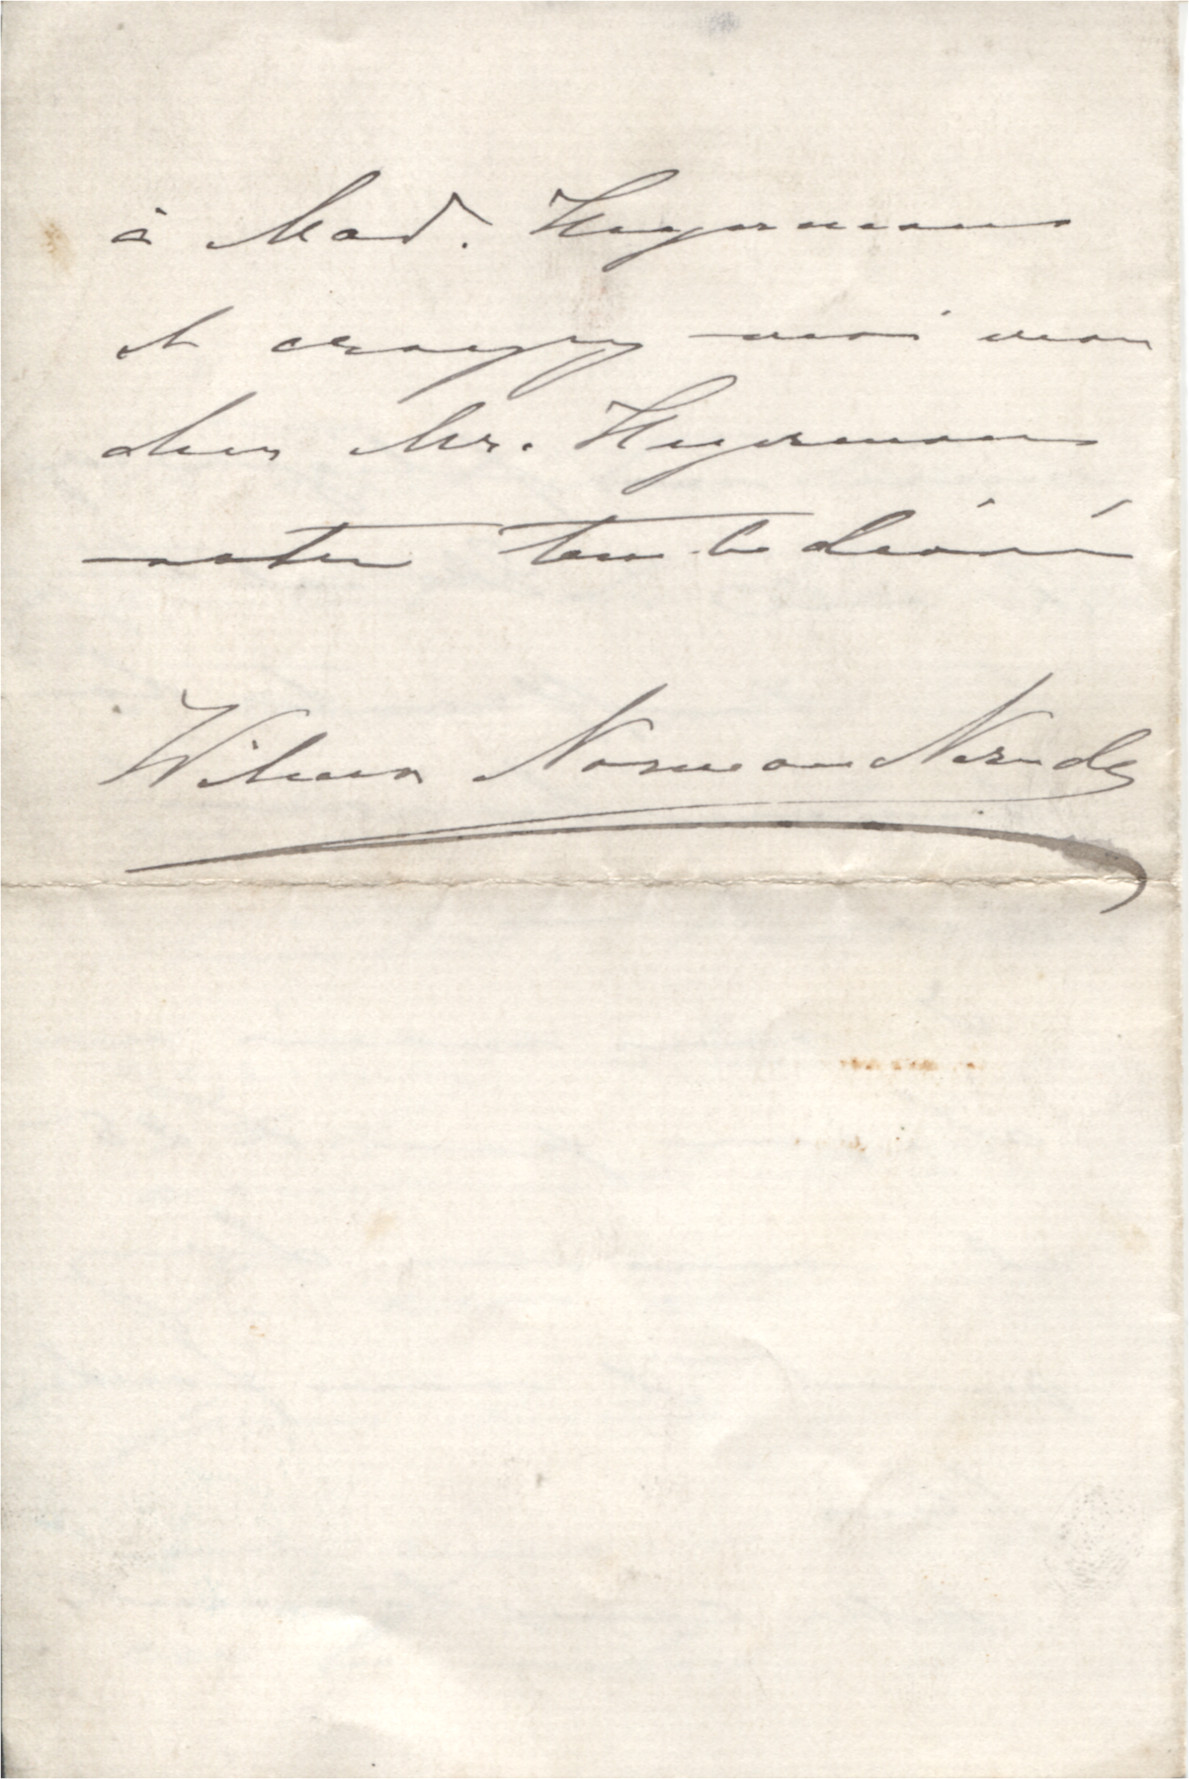 à Mad. Heyermans
et croyez moi mon
cher Mr. Heyermans
votre toute dévouée
Wilma Norman Neruda